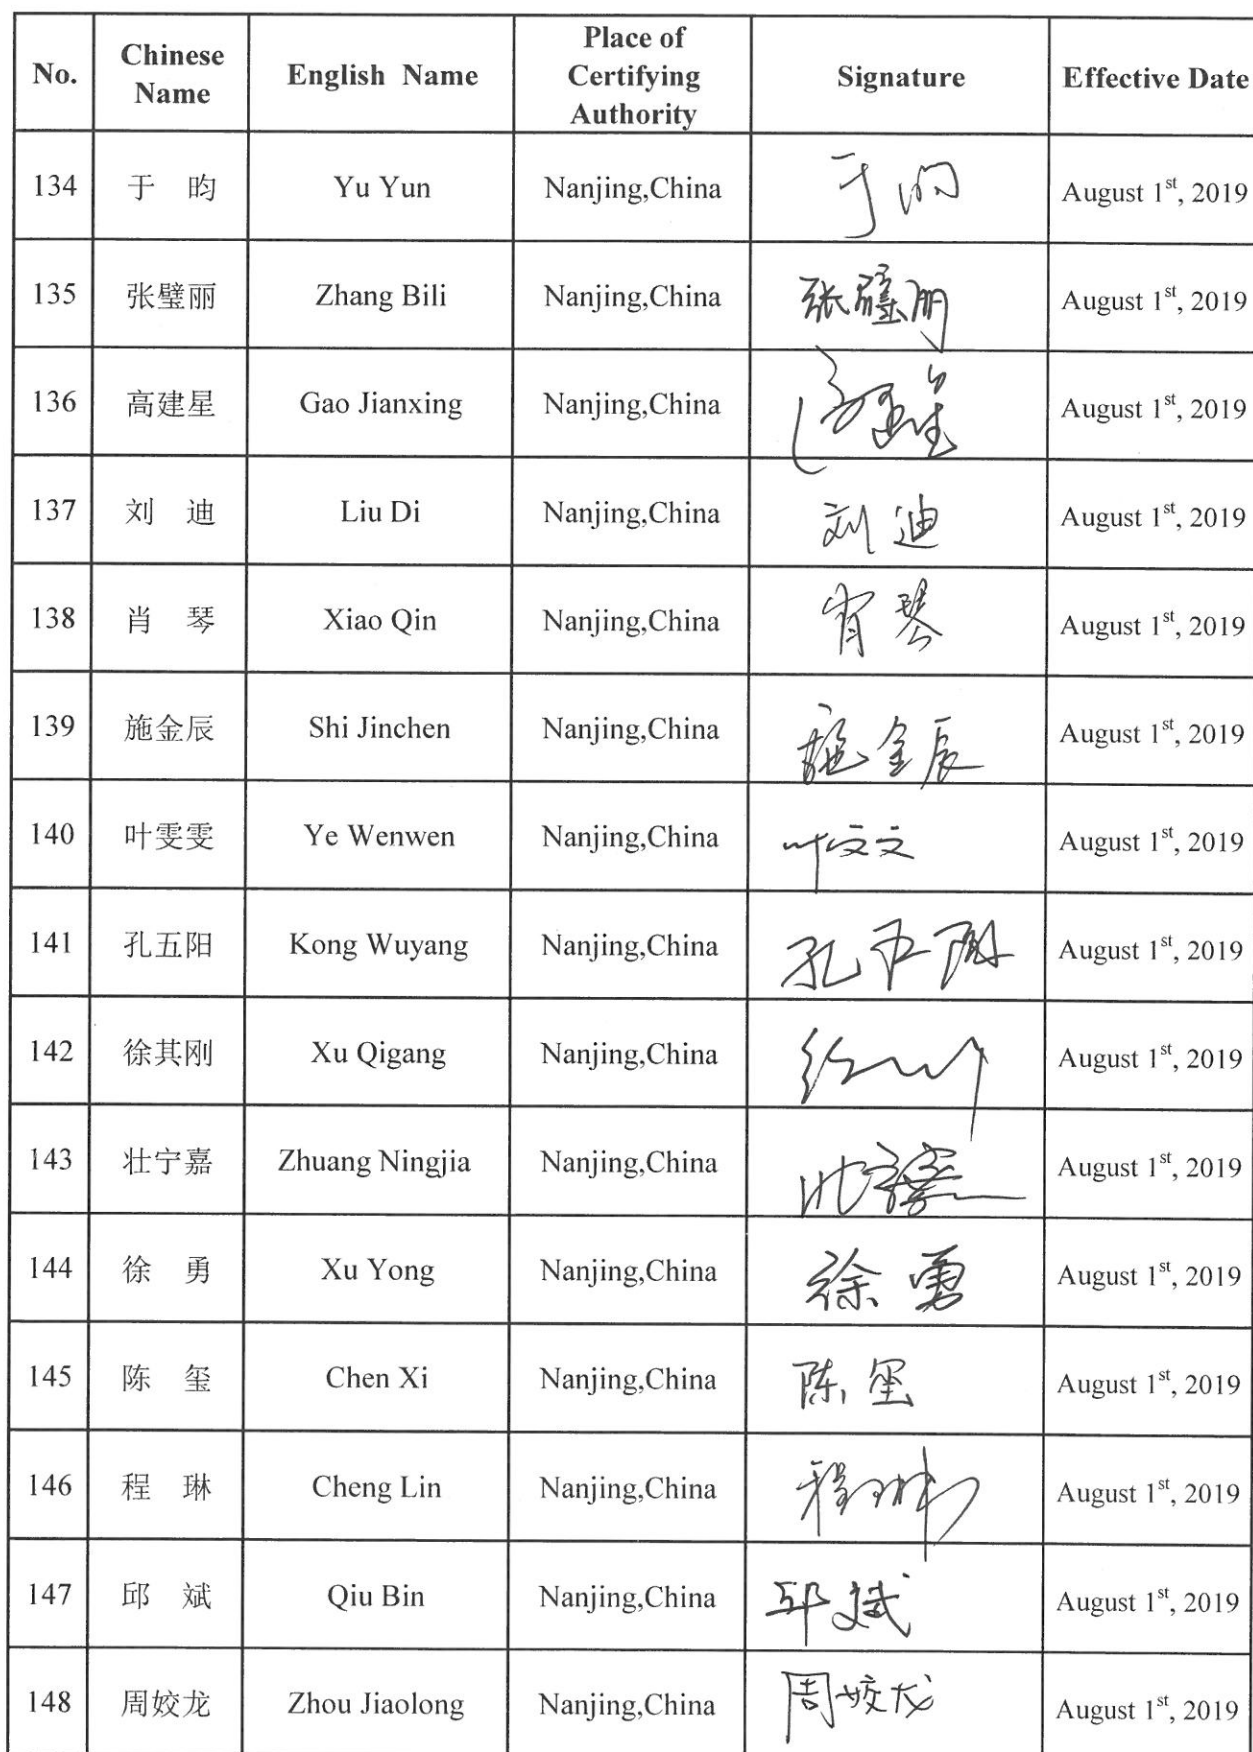 No. Chinese Name English Name Place of Certifying Authority Signature Effective Date
134 于 昀 Yu Yun Nanjing,China 于昀 August 1st, 2019
135 张璧丽 Zhang Bili Nanjing,China 张璧丽 August 1st, 2019
136 高建星 Gao Jianxing Nanjing,China 高建星 August 1st, 2019
137 刘 迪 Liu Di Nanjing,China 刘迪 August 1st, 2019
138 肖 琴 Xiao Qin Nanjing,China 肖琴 August 1st, 2019
139 施金辰 Shi Jinchen Nanjing,China 施金辰 August 1st, 2019
140 叶雯雯 Ye Wenwen Nanjing,China 叶文文 August 1st, 2019
141 孔五阳 Kong Wuyang Nanjing,China 孔五阳 August 1st, 2019
142 徐其刚 Xu Qigang Nanjing,China August 1st, 2019
143 壮宁嘉 Zhuang Ningjia Nanjing,China August 1st, 2019
144 徐 勇 Xu Yong Nanjing,China 徐勇 August 1st, 2019
145 陈 玺 Chen Xi Nanjing,China 陈玺 August 1st, 2019
146 程 琳 Cheng Lin Nanjing,China 程琳 August 1st, 2019
147 邱 斌 Qiu Bin Nanjing,China 邱斌 August 1st, 2019
148 周姣龙 Zhou Jiaolong Nanjing,China 周姣龙 August 1st, 2019